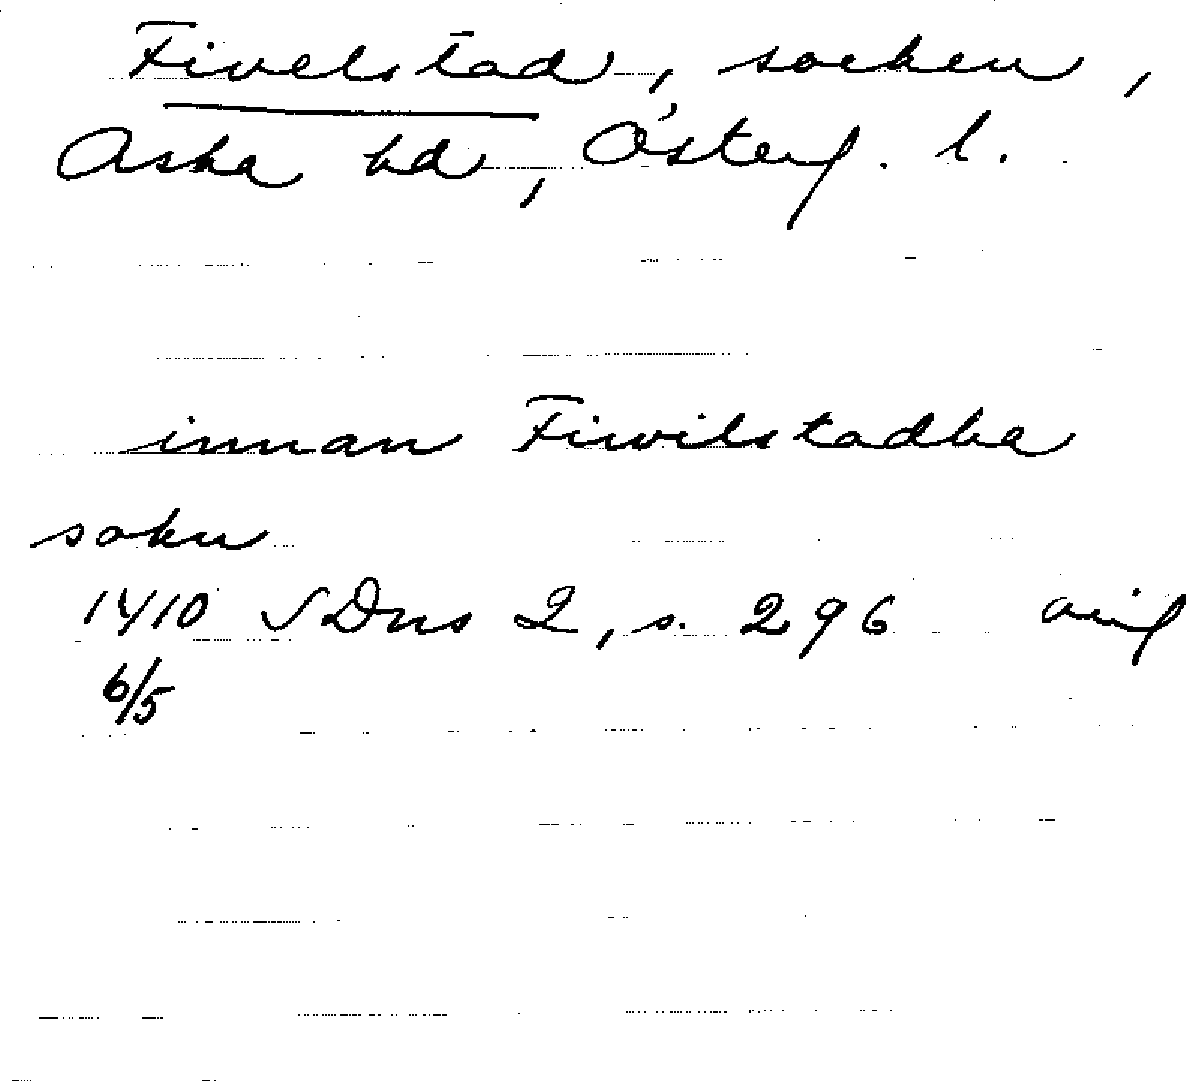 Fivelstad, socken,
Aska hd, Österg. l.
innan Fiwilstadha
sokn
1410 SDns 2, s. 296 orig
6/5